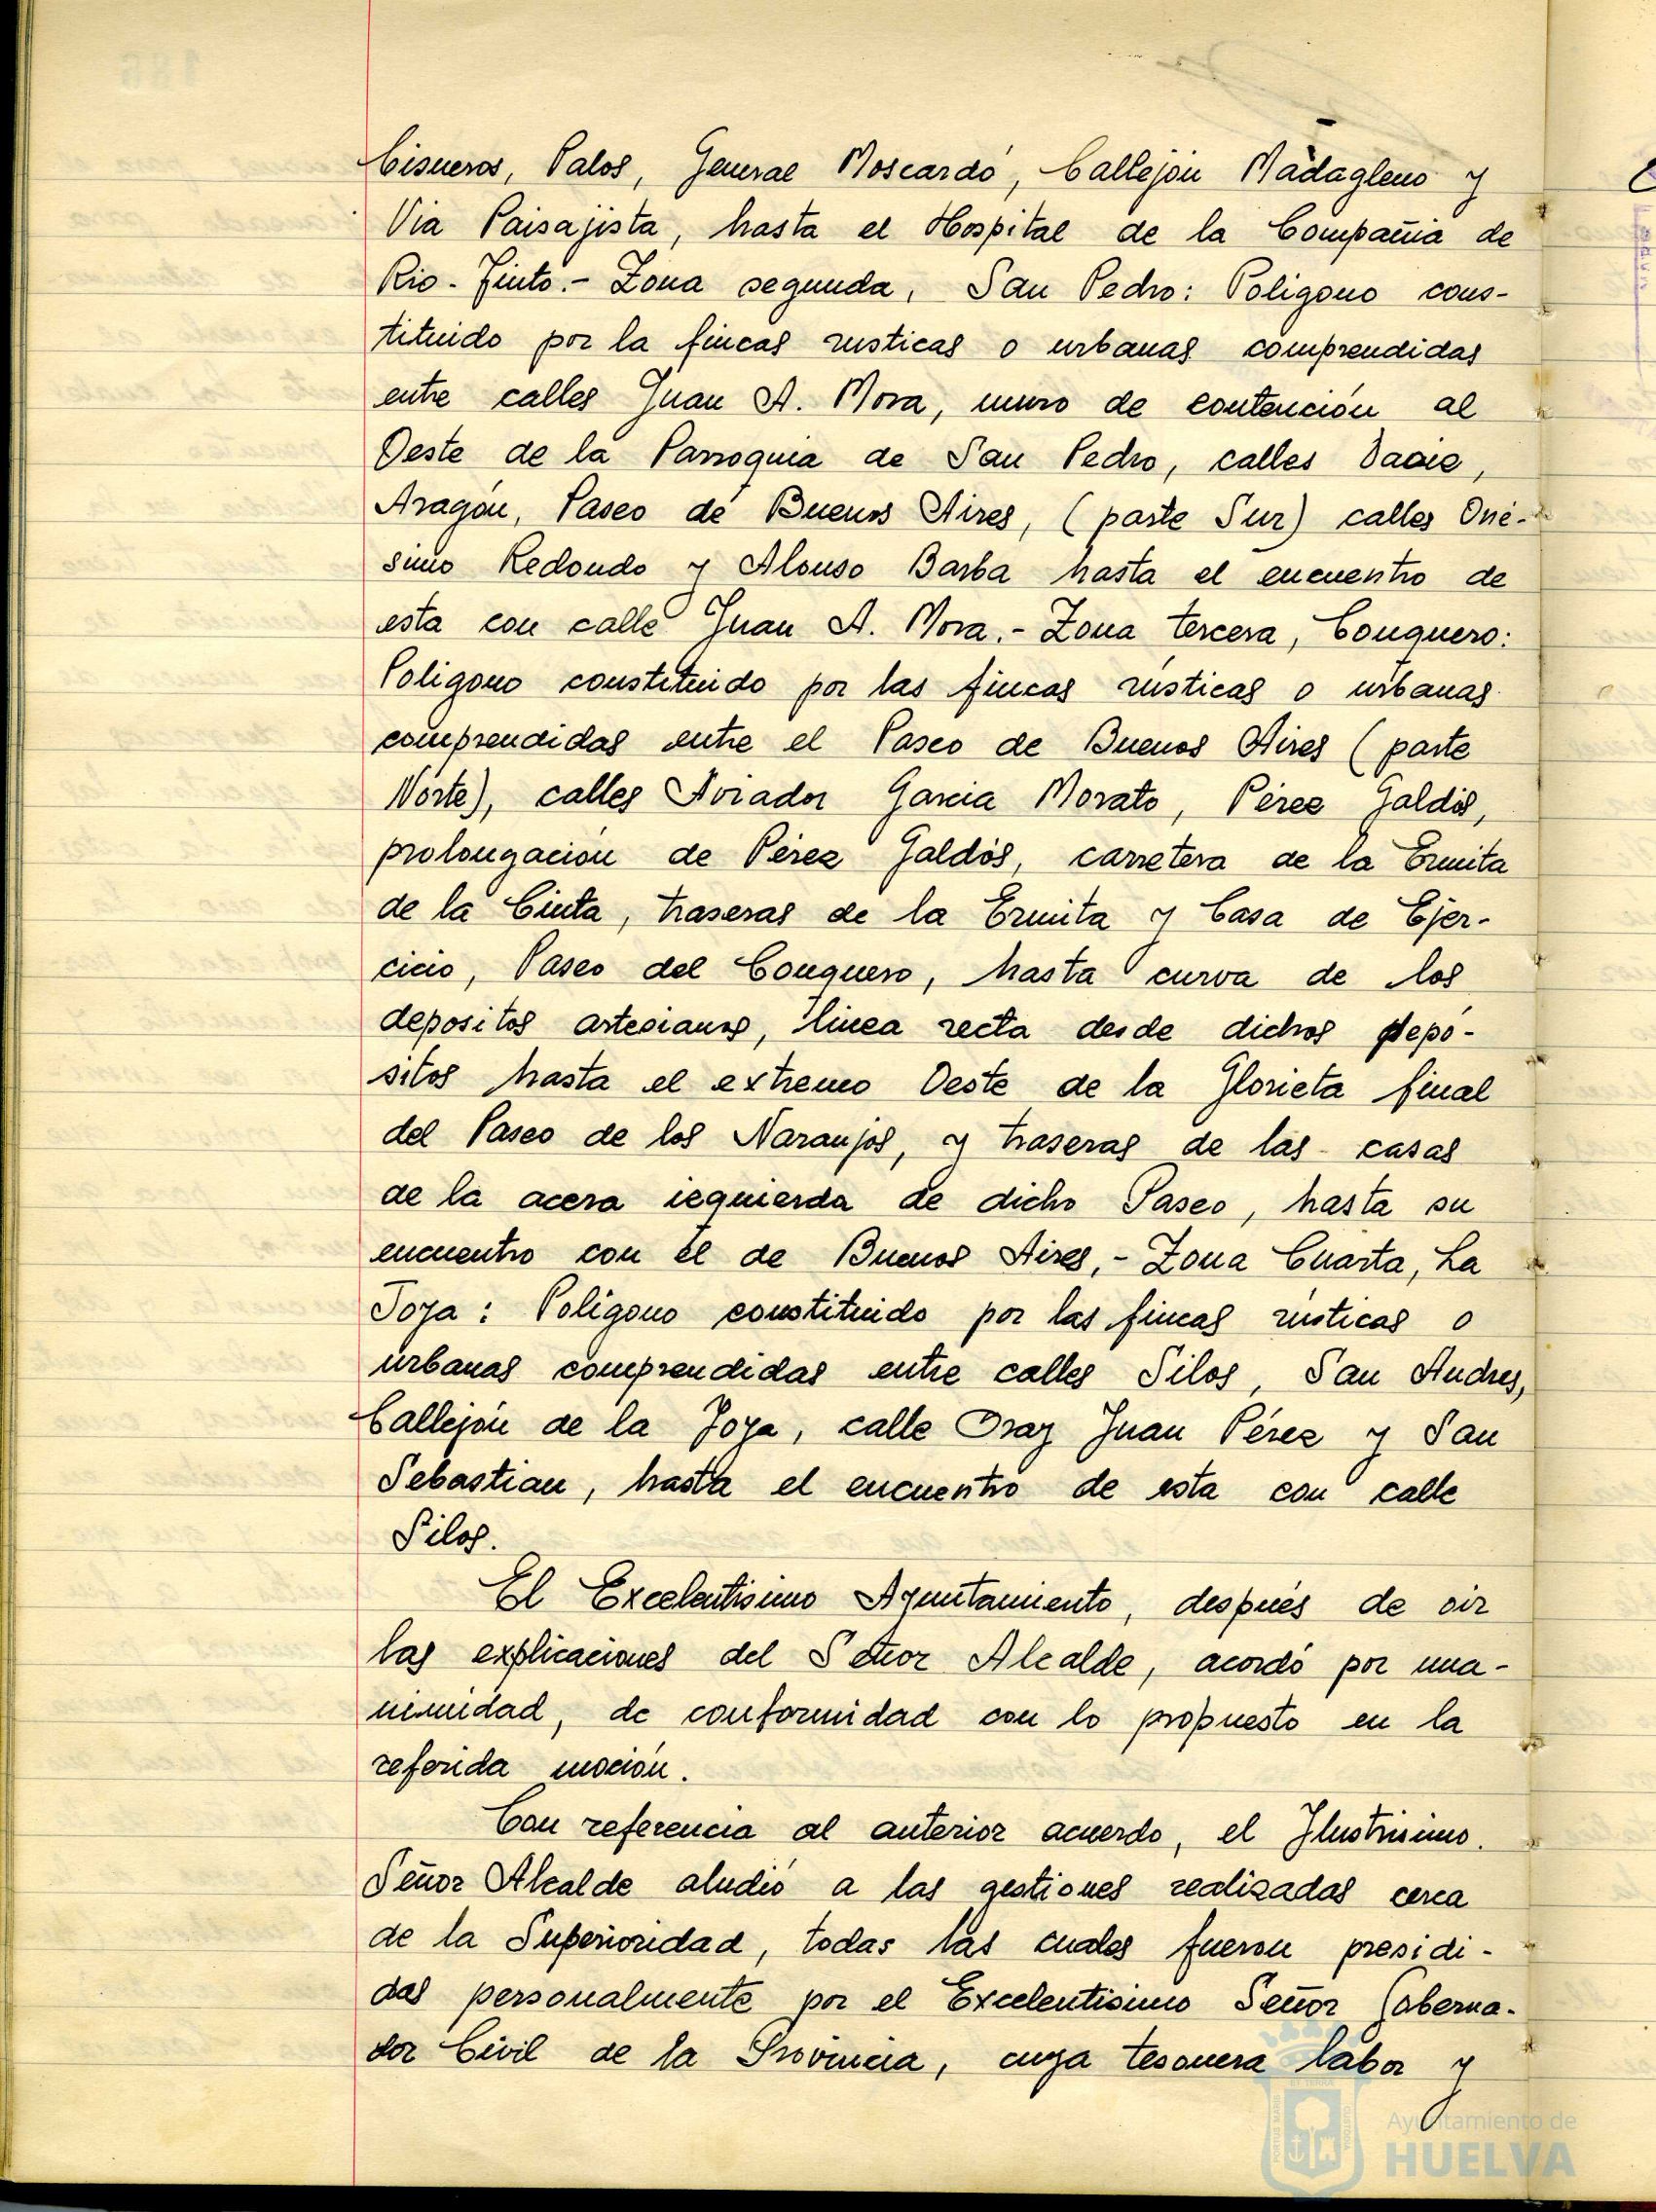 Cisneros, Palos, General Moscardó, Callejón Madagleno y
Via Paisajista, hasta el Hospital de la Compañia de
Rio-Tinto.- Zona segunda, San Pedro: Poligono cons-
tituido por la fincas rusticas o urbanas comprendidas
entre calles Juan A. Mora, muro de contención al
Oeste de la Parroquia de San Pedro, calles Daoiz,
Aragón, Paseo de Buenos Aires, (parte Sur) calles Oné-
simo Redondo y Alonso Barba hasta el encuentro de
esta con calle Juan A. Mora.- Zona tercera, Conquero:
Poligono constituido por las fincas rústicas o urbanas
comprendidas entre el Paseo de Buenos Aires (parte
Norte), calles Aviador Garcia Morato, Pérez Galdós,
prolongación de Pérez Galdós, carretera de la Ermita
de la Cinta, traseras de la Ermita y Casa de Ejer-
cicio, Paseo del Conquero, hasta curva de los
depositos artesianos, linea recta desde dichos depó-
sitos hasta el extremo Oeste de la Glorieta final
del Paseo de los Naranjos, y traseras de las casas
de la acera izquierda de dicho Paseo, hasta su
encuentro con el de Buenos Aires,- Zona Cuarta, La
Joya: Poligono constituido por las fincas rústicas o
urbanas comprendidas entre calles Silos, San Andres,
Callejón de la Joya, calle Fray Juan Pérez y San
Sebastian, hasta el encuentro de esta con calle
Silos.
El Excelentisimo Ayuntamiento, después de oir
las explicaciones del Señor Alcalde, acordó por una-
nimidad, de conformidad con lo propuesto en la
referida moción.
Con referencia al anterior acuerdo, el Ilustrisimo.
Señor Alcalde aludió a las gestiones realizadas cerca
de la Superioridad, todas las cuales fueron presidi-
das personalmente por el Excelentisimo Señor Goberna-
dor Civil de la Provincia, cuya tesonera labor y
Ayuntamiento de
HUELVA